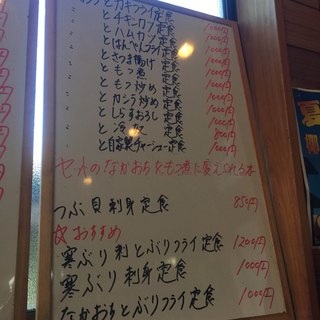 とカキフライ定食
〃 とチキンカツ定食 1000円
〃 とハムカツ定食 1000円
〃 とはんぺんフライ定食 1000円
〃 とさつま揚げ定食 1000円
〃 ともつ煮定食 1000円
〃 ともつ炒め定食 1000円
〃 とカシラ炒め定食 1000円
〃 としらすおろし定食 1000円
〃 と冷 定食 800円
〃 と自家製チャーシュー定食 1000円
セットのなかおちをもつ煮に変えられます
つぶ貝刺身定食 850円
おすすめ
寒ぶり刺とぶりフライ定食 1200円
寒ぶり刺身定食 1000円
なかおちとぶりフライ定食 1000円